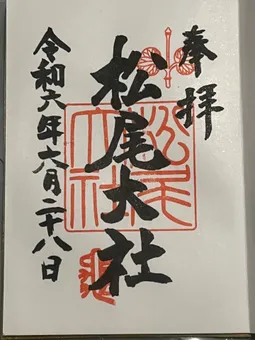 奉拝
松尾大社
松尾大社
令和六年六月二十八日